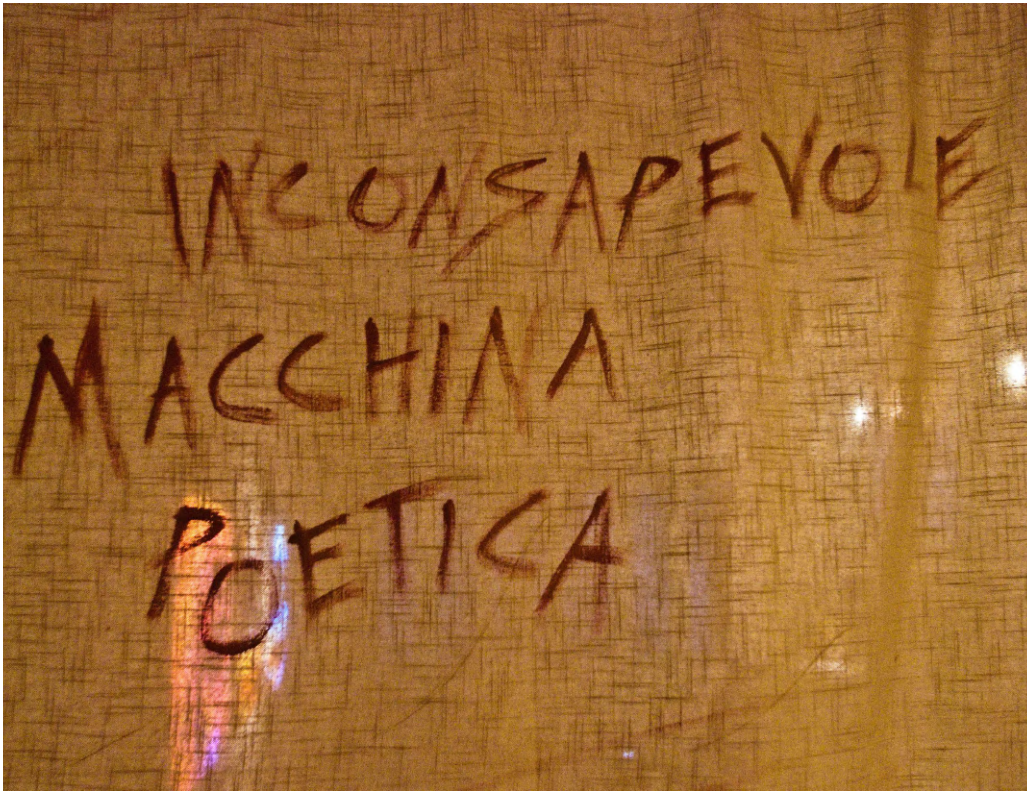 INCONSAPEVOLE
MACCHINA
POETICA